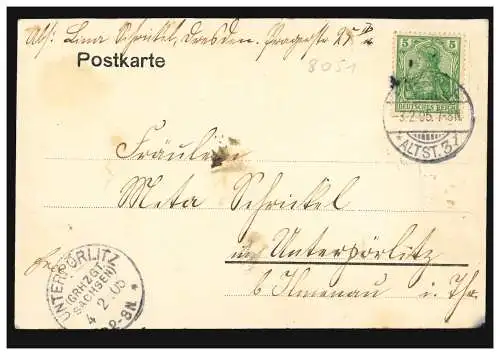 Abs: Lina Schrickel, Dresden. Pragerstr 25
Postkarte
8051
5 5
DEUTSCHES REICH
-3.2.05. 7-8N.
*ALTST. 31
Fräulein
Meta Schrickel
in Unterpörlitz
b Ilmenau i. Thr.
UNTERPÖRLITZ
(GRHZGT. SACHSEN)
4 2 05
2-8N. *